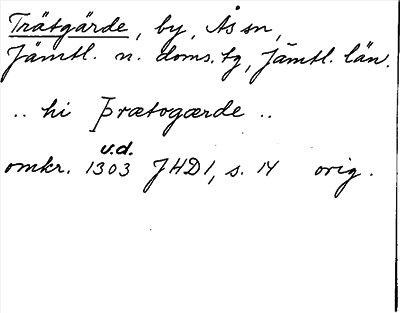 Trätgärde, by, Ås sn,
Jämtl. n. doms. tg, Jämtl. län.
.. hi Þrætogærde ..
u.d.
omkr. 1303 JHD1, s. 14 orig.